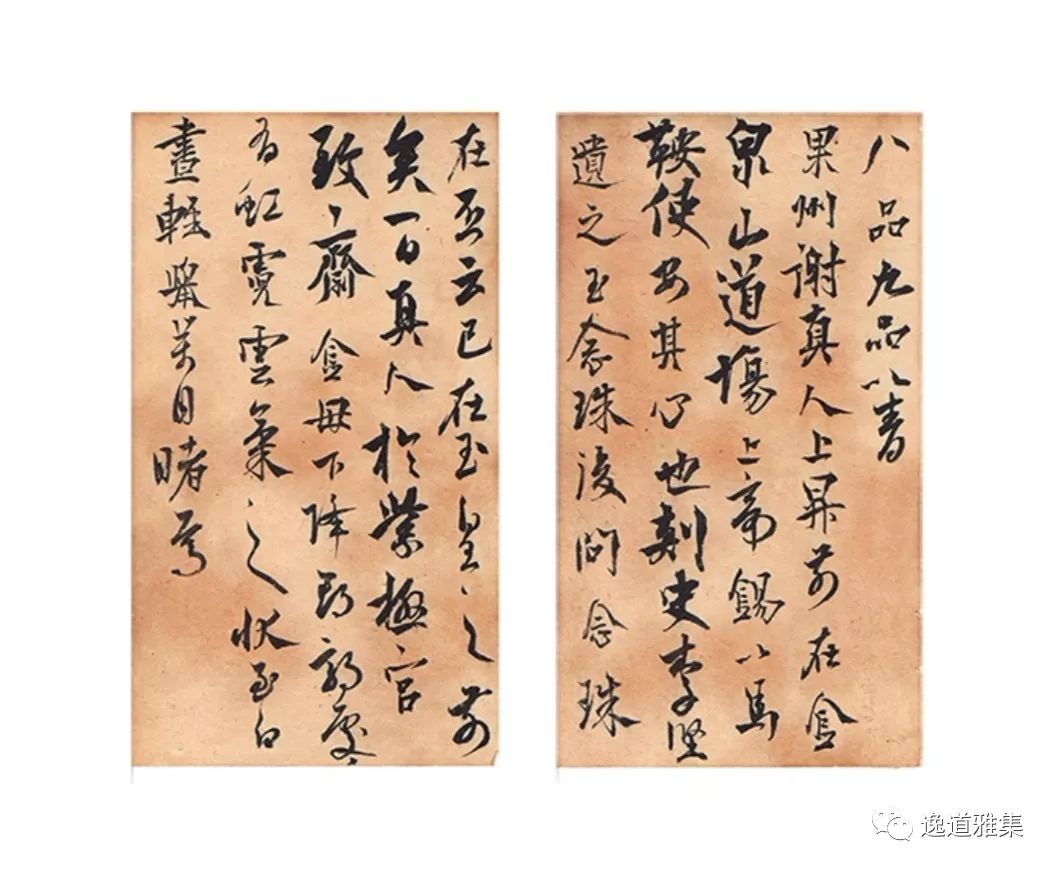 八品九品以青
果州谢真人上昇前在金
泉山道場上帝錫以馬
鞍使安其心也刺史李堅
遺之玉念珠後問念珠
在否云已在玉皇之前
矣一日真人於紫極宫
致齋金母下降郡郭處々
有虹霓雲氣之状至白
晝輕舉萬目睹焉
逸道雅集